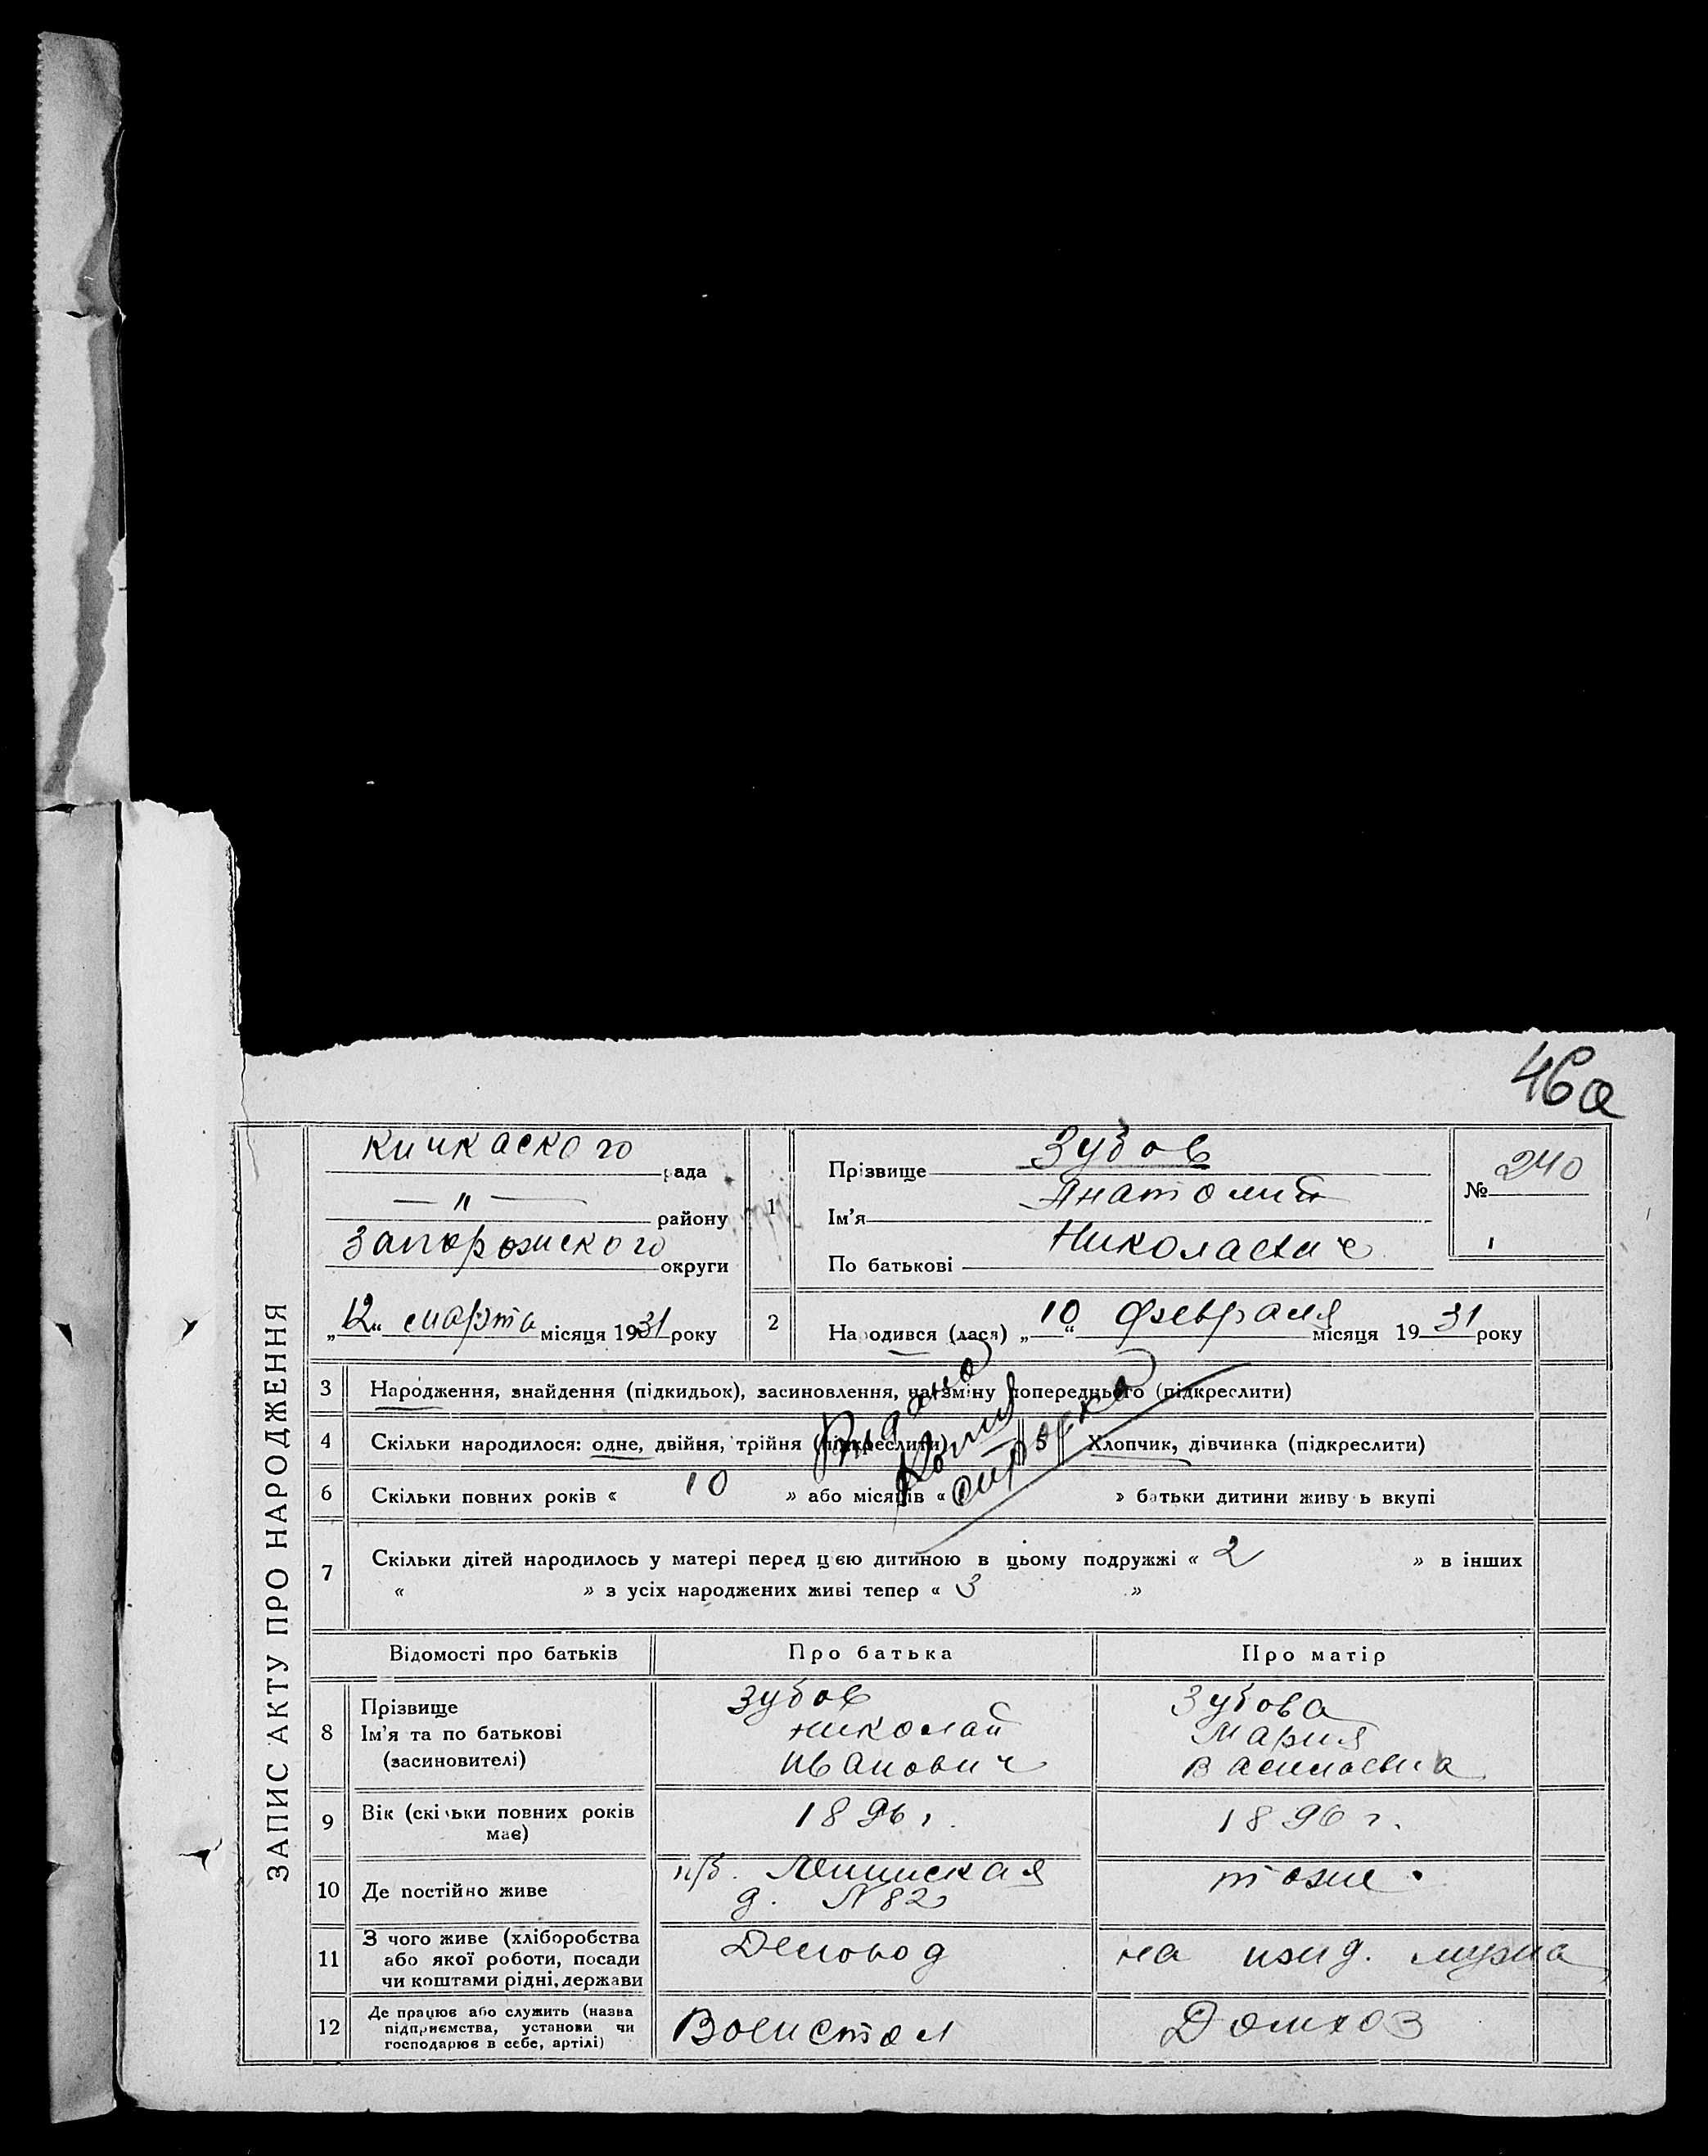 46а
ЗАПИС АКТУ ПРО НАРОДЖЕННЯ
Кичкаского рада
— " — району
Запорожского округи
„12“ марта місяця 1931 року
1
Прізвище Зубов
Ім'я Анатолий
По батькові Николаевич
№ 240
2 Народився (лася) „10“ февраля місяця 1931 року
3 Народження, знайдення (підкидьок), засиновлення, на зміну попереднього (підкреслити)
4 Скільки народилося: одне, двійня, трійня (підкреслити) 5 Хлопчик, дівчинка (підкреслити)
Выдано
Копия
6 Скільки повних років « 10 » або місяців « » батьки дитини живуть вкупі
7 Скільки дітей народилось у матері перед цією дитиною в цьому подружжі « 2 » в інших
« » з усіх народжених живі тепер « 3 »
Відомості про батьків Про батька Про матір
8 Прізвище Зубов Зубова
Ім'я та по батькові Николай Мария
(засиновителі) Иванович Васильевна
9 Вік (скільки повних років має) 1896 г. 1896 г.
10 Де постійно живе Ленинская д. № 82 тоже
11 З чого живе (хліборобства
або якої роботи, посади
чи коштами рідні, держави Деловод на ижд. мужа
12 Де працює або служить (назва
підприємства, установи чи
господарює в себе, артілі) Военстол Домхоз